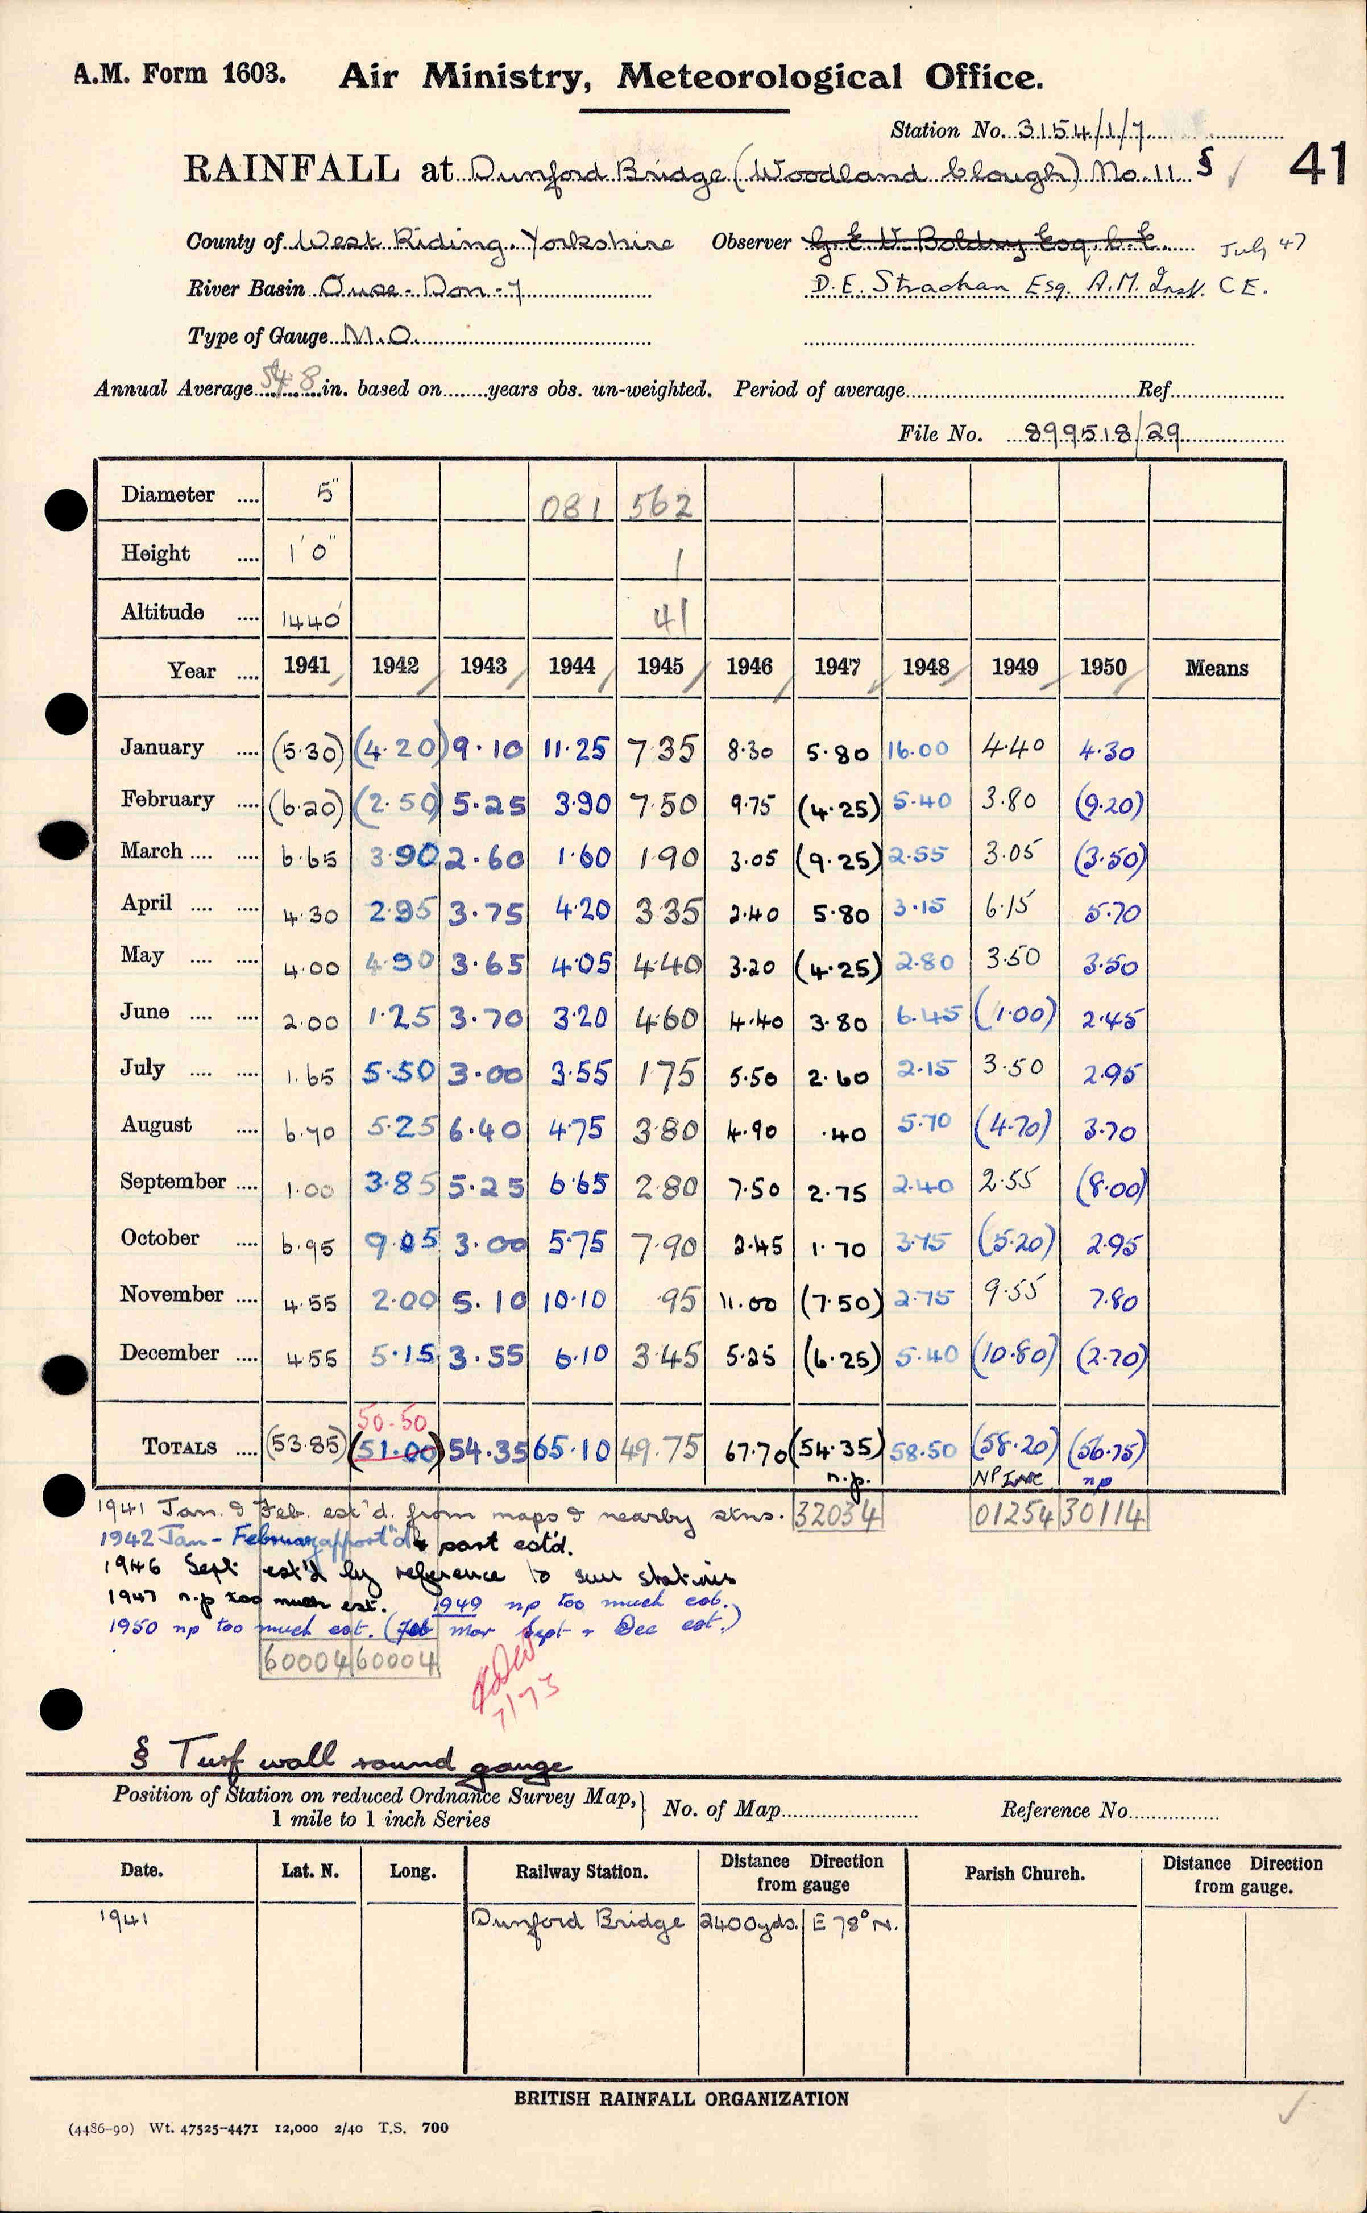 A.M. Form 1603. Air Ministry, Meteorological Office.
Station No. 3154/1/7
RAINFALL at Dunford Bridge (Woodland Clough) No. 11 § 41
County of West Riding. Yorkshire Observer G E V. Boldry Esq. C.E. July 47
River Basin Ouse-Don-7 D. E. Strachan Esq. A.M. Inst. C E.
Type of Gauge M.O.
Annual Average 54.8 in. based on years obs. un-weighted. Period of average Ref.
File No. 899518/29
Diameter 5" 081 562
Height 1'0" 1
Altitude 1440' 41
Year 1941 1942 1943 1944 1945 1946 1947 1948 1949 1950 Means
January (5.30) (4.20) 9.10 11.25 7.35 8.30 5.80 16.00 4.40 4.30
February (6.20) (2.50) 5.25 3.90 7.50 9.75 (4.25) 5.40 3.80 (9.20)
March 6.65 3.90 2.60 1.60 1.90 3.05 (9.25) 2.55 3.05 (3.50)
April 4.30 2.95 3.75 4.20 3.35 2.40 5.80 3.15 6.15 5.70
May 4.00 4.90 3.65 4.05 4.40 3.20 (4.25) 2.80 3.50 3.50
June 2.00 1.25 3.70 3.20 4.60 4.40 3.80 6.45 (1.00) 2.45
July 1.65 5.50 3.00 3.55 1.75 5.50 2.60 2.15 3.50 2.95
August 6.70 5.25 6.40 4.75 3.80 4.90 .40 5.70 (4.70) 3.70
September 1.00 3.85 5.25 6.65 2.80 7.50 2.75 2.40 2.55 (8.00)
October 6.95 9.05 3.00 5.75 7.90 2.45 1.70 3.75 (5.20) 2.95
November 4.55 2.00 5.10 10.10 .95 11.00 (7.50) 2.75 9.55 7.80
December 4.55 5.15 3.55 6.10 3.45 5.25 (6.25) 5.40 (10.80) (2.70)
50.50
TOTALS (53.85) (51.00) 54.35 65.10 49.75 67.70 (54.35) 58.50 (58.20) (56.75)
n.p. NP np
1941 Jan. & Feb. est'd. from maps & nearby stns. 32034 01254 30114
1942 Jan - February apport'd & part est'd.
1946 Sept est'd by reference to stations
1947 n.p too much est. 1949 np too much est.
1950 np too much est. (Feb Mar Sept + Dec est.)
60004 60004
7/73
§ Turf wall round gauge
Position of Station on reduced Ordnance Survey Map, No. of Map Reference No.
1 mile to 1 inch Series
Date. Lat. N. Long. Railway Station. Distance from gauge Direction Parish Church. Distance Direction from gauge.
1941 Dunford Bridge 2400yds. E 78° N.
BRITISH RAINFALL ORGANIZATION
(4486-90) Wt. 47525-4471 12,000 2/40 T.S. 700